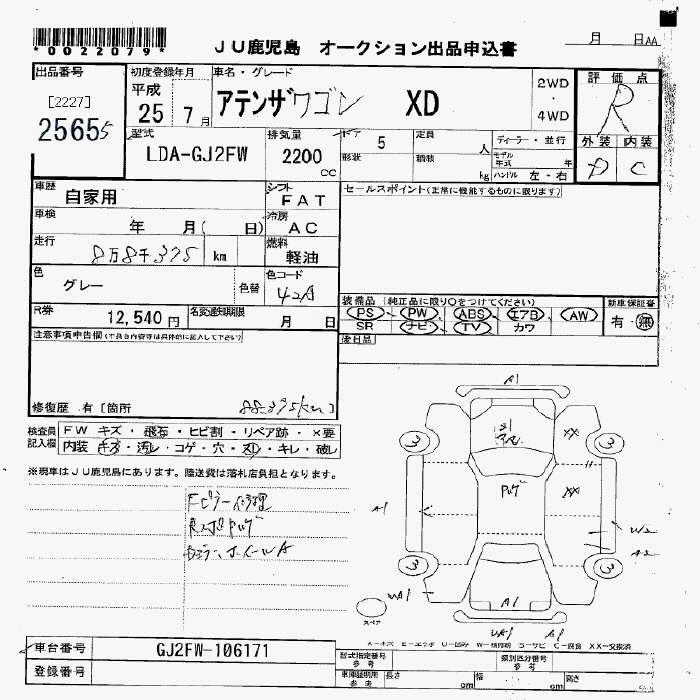 *0022079*
JU鹿児島 オークション出品申込書
月 日AA
出品番号
[2227]
25655
初度登録年月
平成
25 7月
車名・グレード
アテンザワゴン XD
2WD
・
4WD
評価点
R
外装 内装
D C
型式
LDA-GJ2FW
排気量
2200
cc
ドア 5
形状
定員 人
積載 kg
ディーラー・並行
モデル年式 年
ハンドル 左・右
車歴
自家用
シフト
FAT
セールスポイント(正常に機能するものに限ります)
車検
年 月( 日)
冷房
AC
走行
8万8千375 km
燃料
軽油
色
グレー
色替
色コード
42A
R券
12,540円
名変通知期限
月 日
装備品(純正品に限り○をつけてください)
PS PW ABS エアB AW
SR ナビ TV カワ
新車保証書
有・無
後日品
注意事項申告欄(不具合内容等は具体的に記入して下さい)
修復歴 有[箇所
88375km]
検査員記入欄
FW キズ・飛石・ヒビ割・リペア跡・×要
内装 キズ・汚レ・コゲ・穴・スレ・キレ・破レ
※現車はJU鹿児島にあります。陸送費は落札店負担となります。
Fピラー修理
カラーホイールA
A1
XX
3 3
A1
XX
W2
A2
3 3
UA1
A1
スペア
UA1 A1
A-キズ E-エクボ U-凹み W-補修跡 S-サビ C-腐食 XX-交換済
車台番号
GJ2FW-106171
登録番号
型式指定番号
参考
類別区分番号
参考
車庫証明用
参考
長さ cm 幅 cm 高さ cm